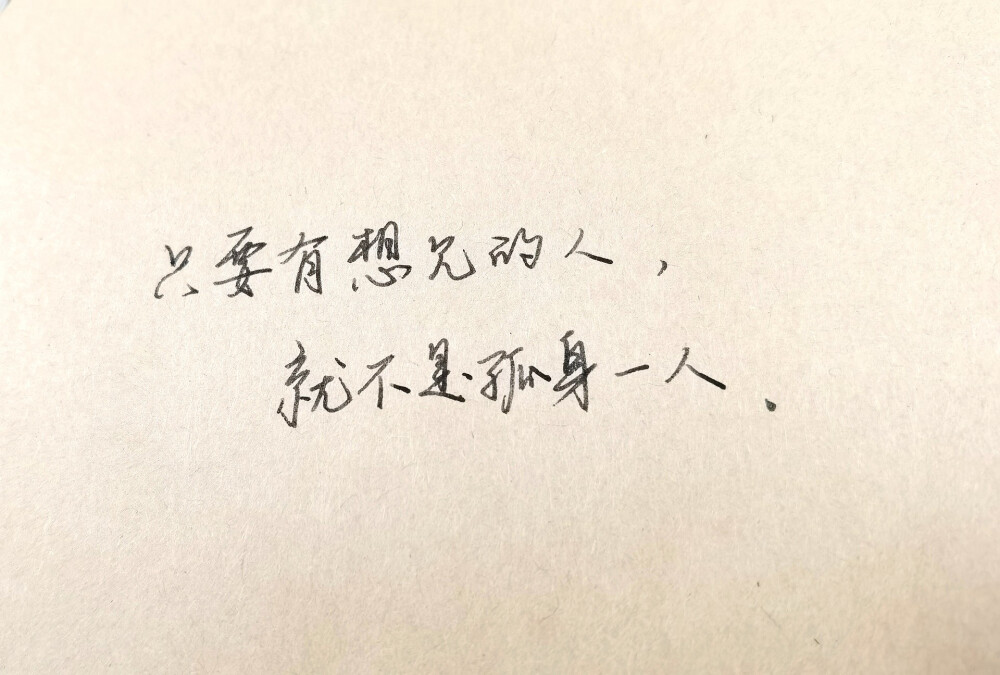 只要有想见的人，
就不是孤身一人.